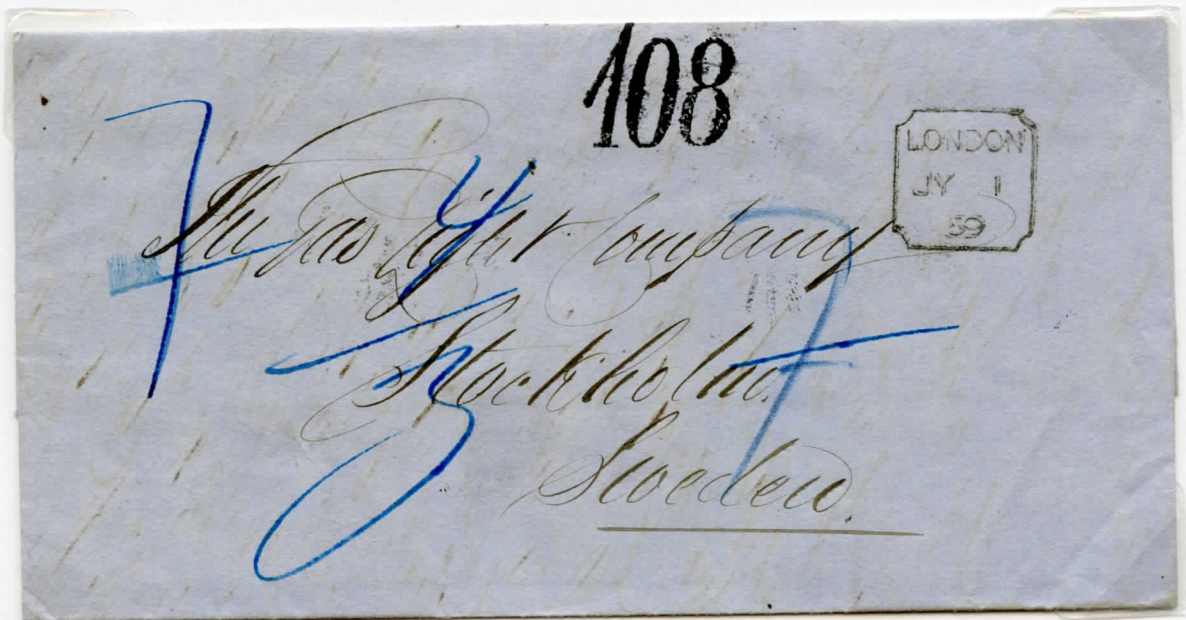 108
LONDON
JY 1
59
7
4
The Gas Light Company
7
3
Stockholm.
Sweden.